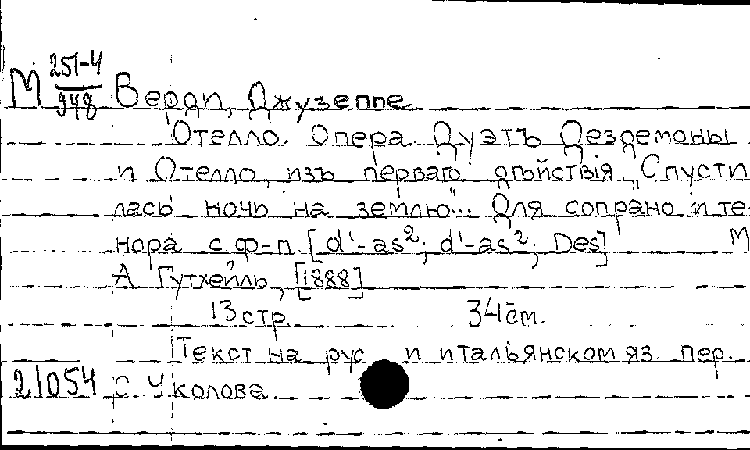 М 251-4/948 Верди, Джузеппе
Отелло. Опера. Дуэтъ Дездемоны
и Отелло, изъ перваго дѣйствія „Спусти
лась ночь на землю"... Для сопрано и те-
нора с ф-п. [d¹-as²; d¹-as²; Des] М
А Гутхейль, [1888]
13 стр. 34 см.
Текст на рус и итальянском яз. пер.
21054 С. Уколова